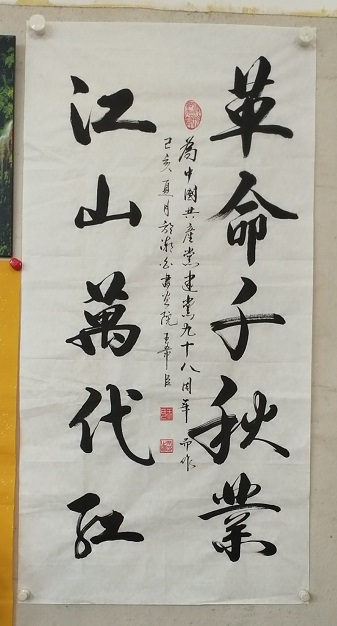 革命千秋業
為中國共產黨建黨九十八周年而作
江山萬代紅
己亥夏月於湖
書畫院